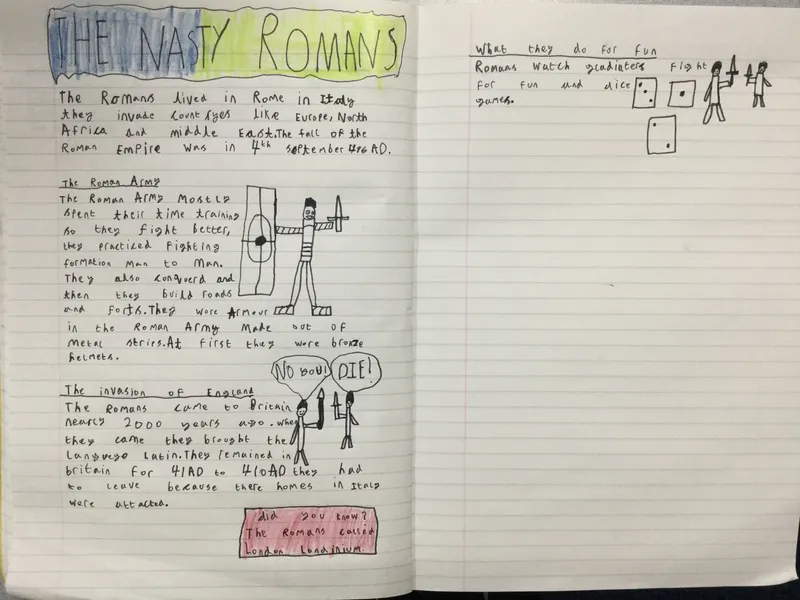 THE NASTY ROMANS
The Romans lived in Rome in Italy
they invade countryes like Europe, North
Africa and middle East.The fall of the
Roman Empire was in 4th september 476 AD.
The Roman Army
The Roman Army Mostly
spent their time training
so they fight better,
they practiced fighting
formation man to man.
They also conquerd and
then they build roads
and forts.They wore Armour
in the Roman Army made out of
metal stries.At first they wore bronze
helmets.
NO YOU!
DIE!
The invasion of England
The Romans came to Britain
nearly 2000 years ago.when
they came they brought the
Language Latin.They remained in
britain for 41AD to 410AD they had
to leave because there homes in Italy
were attacked.
did you know?
The Romans called
London Londinium.
What they do for fun
Romans watch gladiaters fight
for fun and dice
games.